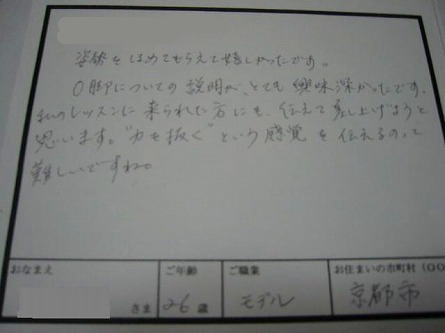 姿勢をほめてもらえて嬉しかったです。
O脚についての説明が、とても興味深かったです。
私のレッスンに来られた方にも、伝えて差し上げようと
思います。"力を抜く"という感覚を伝えるのって
難しいですね。
おなまえ ご年齢 ご職業 お住まいの市町村(〇〇
さま 26歳 モデル 京都市